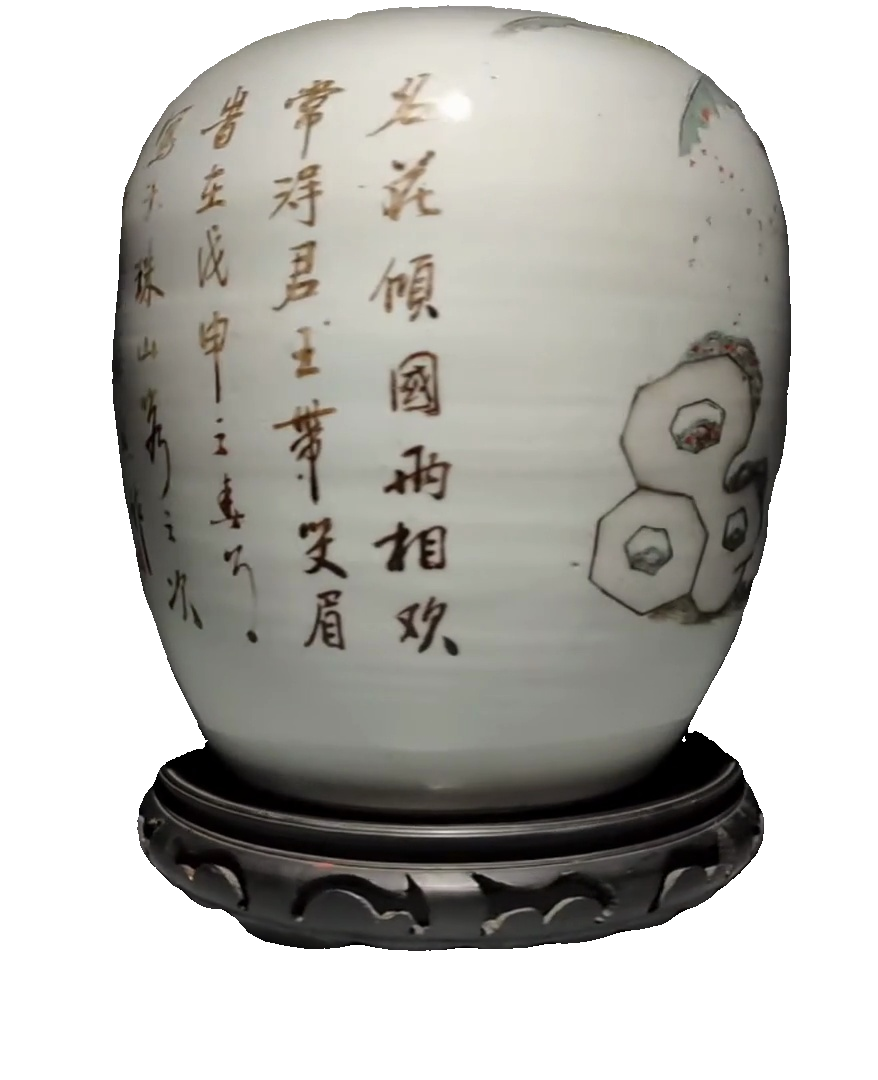 名花傾國兩相欢
常得君王帶笑眉
昔在戊申之春月
寫于珠山客之次